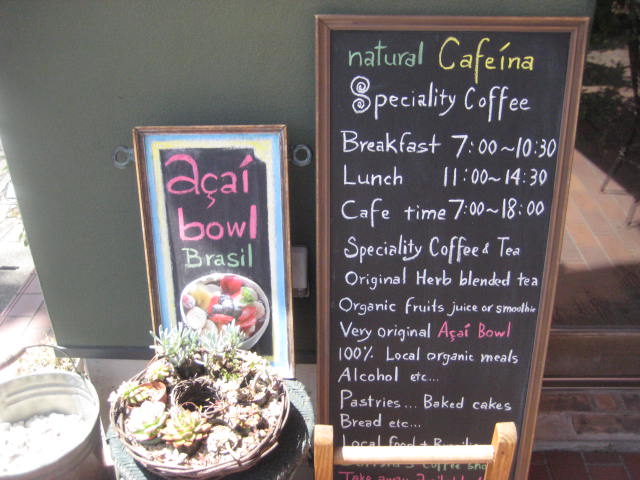 açaí
bowl
Brasil
natural Cafeína
Speciality Coffee
Breakfast 7:00~10:30
Lunch 11:00~14:30
Cafe time 7:00~18:00
Speciality Coffee & Tea
Original Herb blended tea
Organic fruits juice or smoothie
Very original Açaí Bowl
100% Local organic meals
Alcohol etc...
Pastries... Baked cakes
Bread etc...
Local food +
coffee
Take away